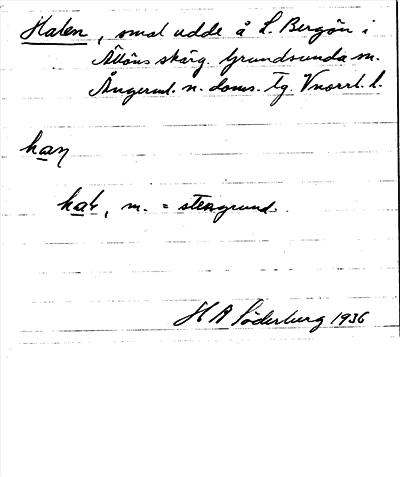 Halen, smal udde å L. Bergön i
skärg. Grundsunda sn.
Ångerml. n. doms. tg. Vnorrl. l.
haɳ
hal, m. = stengrund.
H A Söderberg 1936